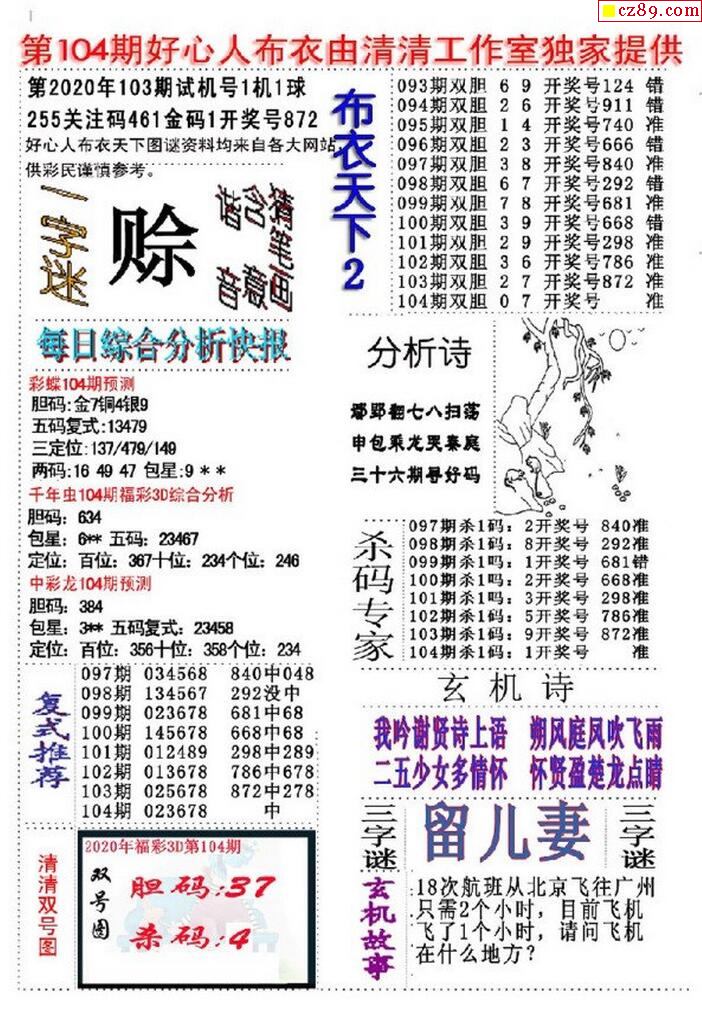 cz89.com
第104期好心人布衣由清清工作室独家提供
第2020年103期试机号1机1球
255关注码461金码1开奖号872
好心人布衣天下图谜资料均来自各大网站,
供彩民谨慎参考。
一字迷
赊
猜笔画
含意
谐音
布衣天下2
093期双胆 6 9 开奖号124 错
094期双胆 2 6 开奖号911 错
095期双胆 1 4 开奖号740 准
096期双胆 2 3 开奖号666 错
097期双胆 3 8 开奖号840 准
098期双胆 6 7 开奖号292 错
099期双胆 7 8 开奖号681 准
100期双胆 3 9 开奖号668 错
101期双胆 2 9 开奖号298 准
102期双胆 3 6 开奖号786 准
103期双胆 2 7 开奖号872 准
104期双胆 0 7 开奖号 准
每日综合分析快报
彩蝶104期预测
胆码:金7铜4银9
五码复式:13479
三定位:137/479/149
两码:16 49 47 包星:9 * *
千年虫104期福彩3D综合分析
胆码：634
包星：6** 五码：23467
定位：百位：367十位：234个位：246
中彩龙104期预测
胆码：384
包星：3** 五码复式：23458
定位：百位：356十位：358个位：234
分析诗
鄢郢翻七八扫荡
申包乘龙哭秦庭
三十六期寻好码
杀码专家
097期杀1码：2开奖号 840准
098期杀1码：8开奖号 292准
099期杀1吗：1开奖号 681错
100期杀1吗：2开奖号 668准
101期杀1吗：3开奖号 298准
102期杀1码：5开奖号 786准
103期杀1码：9开奖号 872准
104期杀1码：1开奖号 准
复式推荐
097期 034568 840中048
098期 134567 292没中
099期 023678 681中68
100期 145678 668中68
101期 012489 298中289
102期 013678 786中678
103期 025678 872中278
104期 023678 中
玄机诗
我吟谢贤诗上语 朔风庭凤吹飞雨
二五少女多情怀 怀贤盈楚龙点睛
三字谜
留儿妻
三字谜
清清双号图
2020年福彩3D第104期
双号图
胆码:37
杀码:4
玄机故事
18次航班从北京飞往广州
只需2个小时，目前飞机
飞了1个小时，请问飞机
在什么地方?